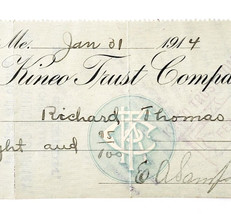 Me. Jan 31 1914
Kineo Trust Compa
Richard Thomas
ght and 95/100
E A Samp